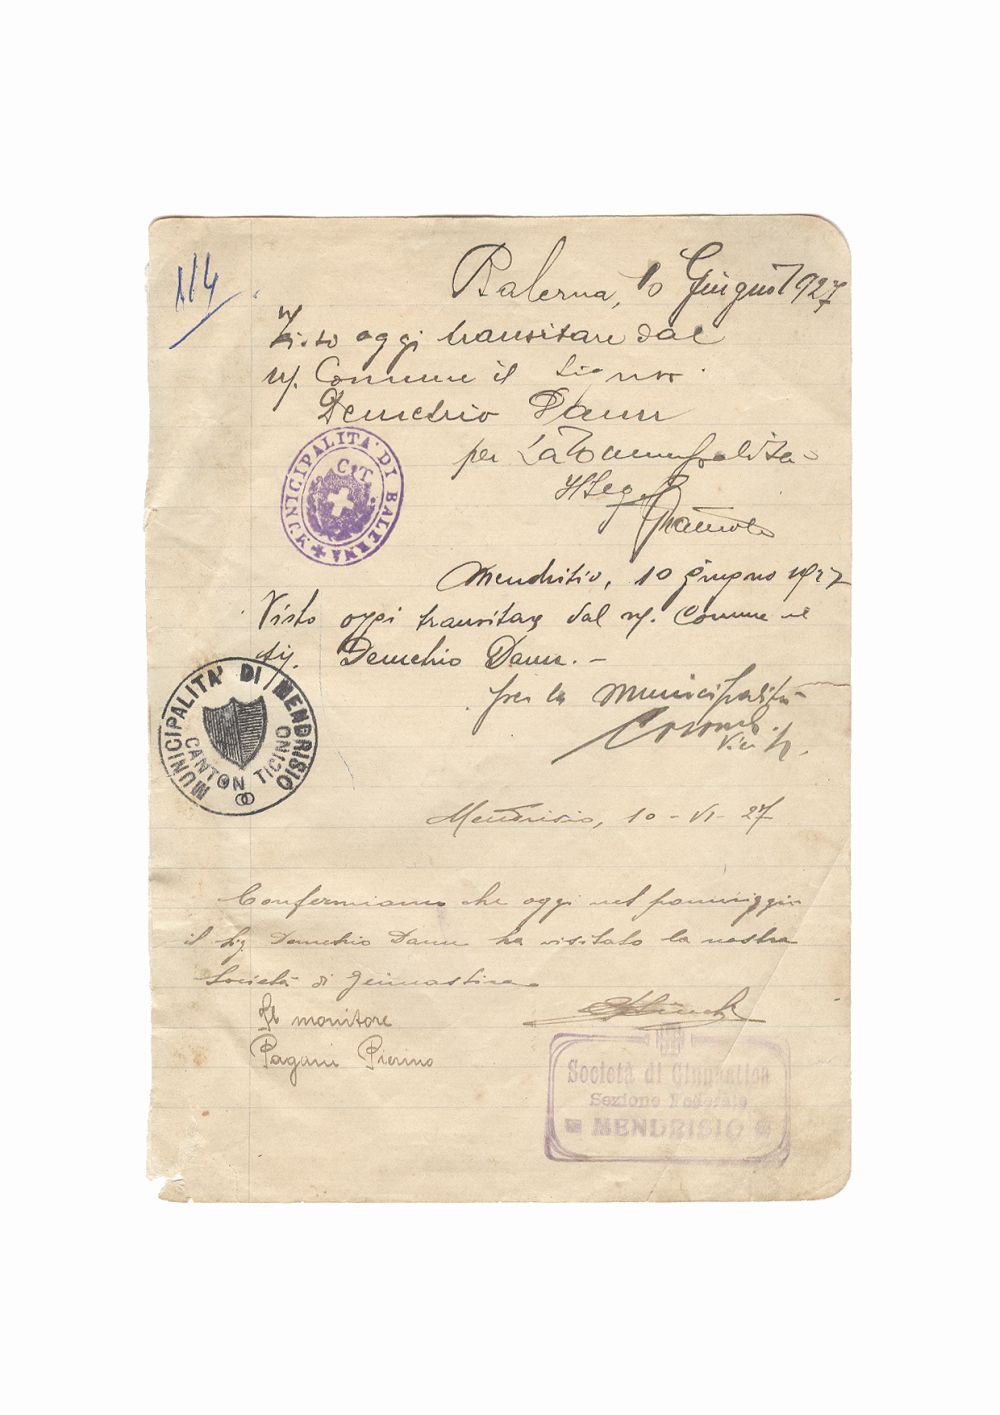 114
Balerna, 10 Giugno 1927
Visto oggi transitare dal
n/. Comune il Signor
Demetrio Dann
per La Municipalità
Il Seg.
MUNICIPALITA' DI BALERNA
C.T.
Mendrisio, 10 giugno 1927
Visto oggi transitare dal n/. Comune il
sig. Demetrio Dann. –
per la Municipalità
Vice
MUNICIPALITA' DI MENDRISIO
CANTON TICINO
Mendrisio, 10 - VI - 27
Confermiamo che oggi nel pomeriggio
il Sig. Demetrio Dann ha visitato la nostra
Società di Ginnastica.
Il monitore
Pagani Pierino
Società di Ginnastica
Sezione Federale
MENDRISIO